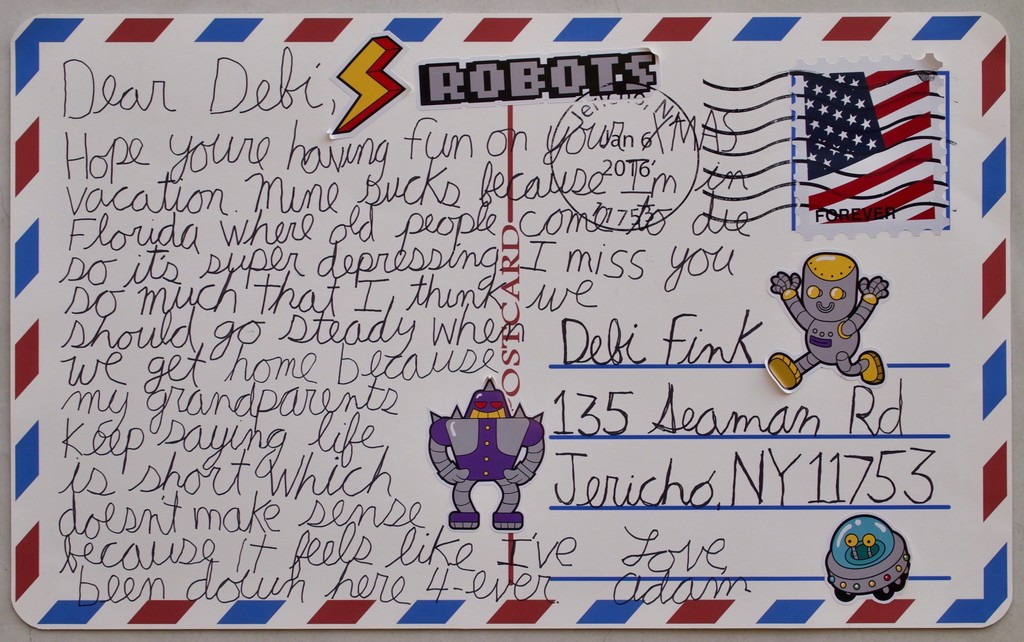 Dear Debi,
ROBOTS
Hope you're having fun on your XMAS
vacation. Mine sucks because I'm in
Florida where old people come to die
so it's super depressing. I miss you
so much that I think we
should go steady when
we get home because
my grandparents
keep saying life
is short which
doesn't make sense
because it feels like I've
been down here 4-ever.
Love,
adam
Jericho, NY
Jan 6
2016
11753
FOREVER
POSTCARD
Debi Fink
135 Seaman Rd
Jericho, NY 11753